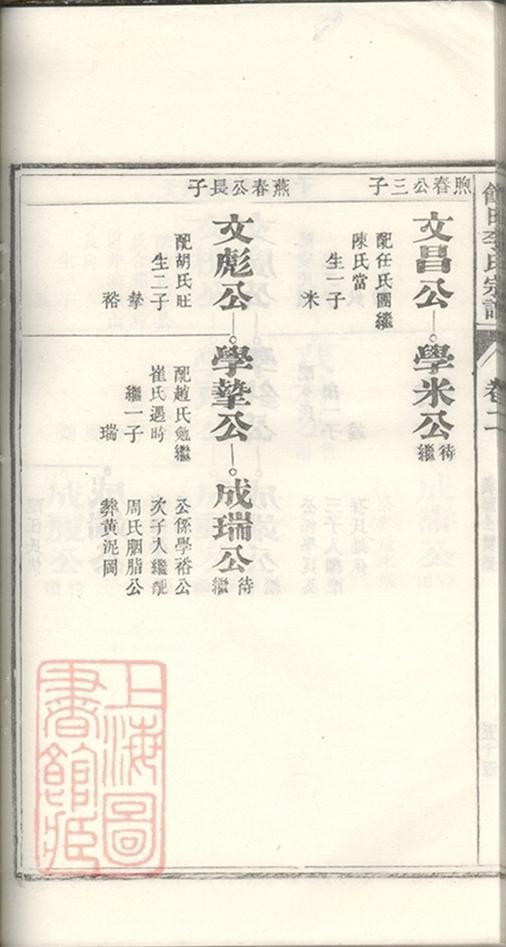 李氏宗譜
卷二
煦春公三子
文昌公
學米公
待繼
配任氏團繼
陳氏當
生一子
米
燕春公長子
文彪公
學摯公
成瑞公
待繼
配胡氏旺
生二子
摯
裕
配趙氏勉繼
崔氏遇時
繼一子
瑞
公係學裕公
次子入繼配
周氏胭脂公
葬黃泥岡
上海圖
書館藏